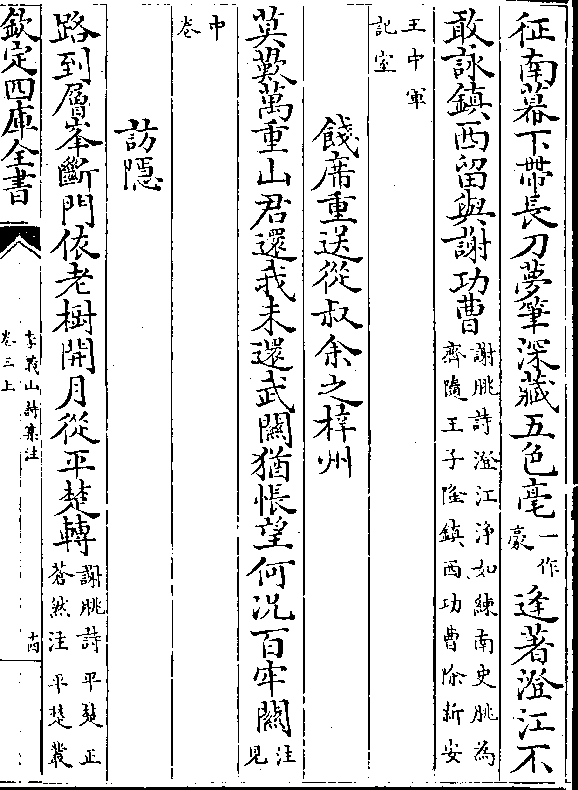 征南幕下帶長刀夢筆深藏五色毫一作豪逢著澄江不
敢詠鎮西留與謝功曹謝朓詩澄江淨如練南史朓為齊隨王子隆鎮西功曹除新安
王中軍記室
餞席重送從叔余之梓州
莫歎萬重山君還我未還武關猶悵望何況百牢關注見
中卷
訪隱
路到層峯斷門依老樹開月從平楚轉謝朓詩平楚正蒼然注平楚叢
欽定四庫全書
李義山詩集注
卷三上
十四